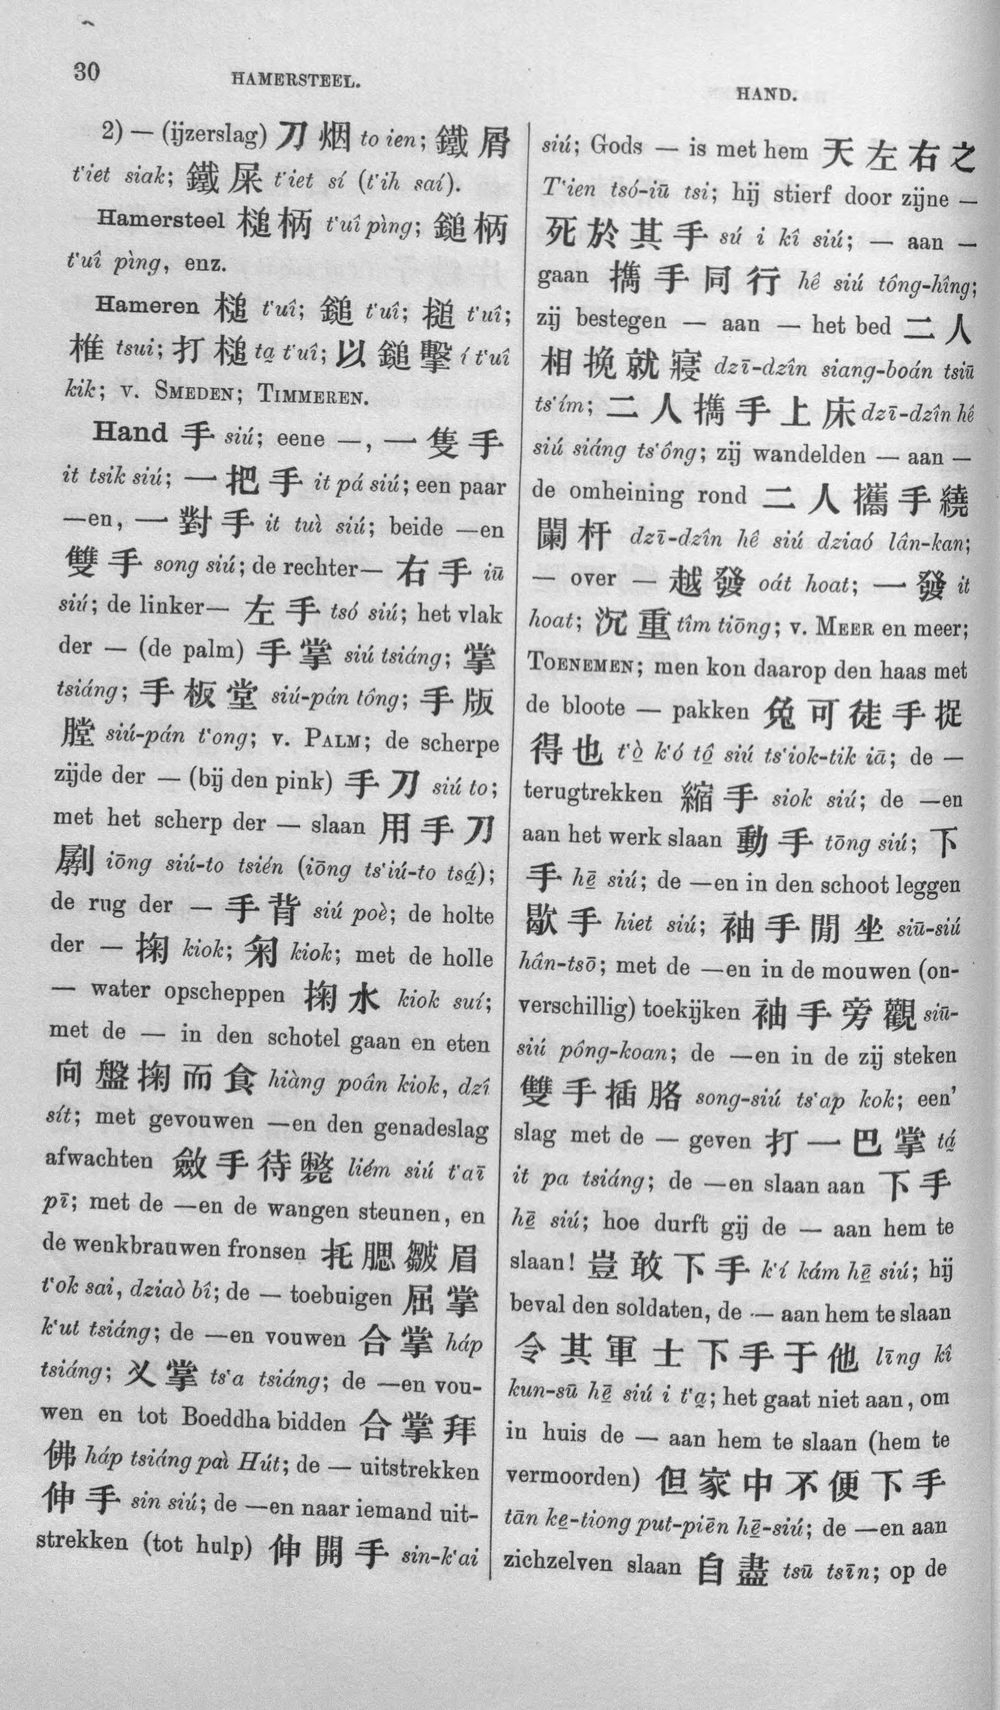 30
HAMERSTEEL.
HAND.
2) — (ijzerslag) 刀烟 to ien; 鐵屑
t‘iet siak; 鐵屎 t‘iet sí (t‘ih saí).
Hamersteel 槌柄 t‘uî pìng; 鎚柄
t‘uî pìng, enz.
Hameren 槌 t‘uî; 鎚 t‘uî; 搥 t‘uî;
椎 tsui; 打槌 ta̤ t‘uî; 以鎚擊 í t‘uî
kik; v. SMEDEN; TIMMEREN.
Hand 手 siú; eene —, 一隻手
it tsik siú; 一把手 it pá siú; een paar
—en, 一對手 it tuì siú; beide —en
雙手 song siú; de rechter— 右手 iū
siú; de linker— 左手 tsó siú; het vlak
der — (de palm) 手掌 siú tsiáng; 掌
tsiáng; 手板堂 siú-pán tông; 手版
膛 siú-pán t‘ong; v. PALM; de scherpe
zijde der — (bij den pink) 手刀 siú to;
met het scherp der — slaan 用手刀
劇 iōng siú-to tsién (iōng ts‘iú-to tsá̤);
de rug der — 手背 siú poè; de holte
der — 掬 kiok; 匊 kiok; met de holle
— water opscheppen 掬水 kiok suí;
met de — in den schotel gaan en eten
向盤掬而食 hiàng poân kiok, dzî
sít; met gevouwen —en den genadeslag
afwachten 斂手待斃 liém siú t‘aī
pī; met de —en de wangen steunen, en
de wenkbrauwen fronsen 托腮皺眉
t‘ok sai, dziaò bî; de — toebuigen 屈掌
k‘ut tsiáng; de —en vouwen 合掌 háp
tsiáng; 义掌 ts‘a tsiáng; de —en vou-
wen en tot Boeddha bidden 合掌拜
佛 háp tsiáng paì Hút; de — uitstrekken
伸手 sin siú; de —en naar iemand uit-
strekken (tot hulp) 伸開手 sin-k‘ai
siú; Gods — is met hem 天左右之
T‘ien tsó-iū tsi; hij stierf door zijne —
死於其手 sú i kî siú; — aan —
gaan 擕手同行 hê siú tông-hîng;
zij bestegen — aan — het bed 二人
相挽就寢 dzī-dzîn siang-boán tsiū
ts‘ím; 二人擕手上床 dzī-dzîn hê
siú siáng ts‘ông; zij wandelden — aan —
de omheining rond 二人攜手繞
闌杆 dzī-dzîn hê siú dziaó lân-kan;
— over — 越發 oát hoat; 一發 it
hoat; 沉重 tîm tiōng; v. MEER en meer;
TOENEMEN; men kon daarop den haas met
de bloote — pakken 兔可徒手捉
得也 t‘ò̤ k‘ó tô̤ siú ts‘iok-tik iā; de —
terugtrekken 縮手 siok siú; de —en
aan het werk slaan 動手 tōng siú; 下
手 hē̤ siú; de —en in den schoot leggen
歇手 hiet siú; 袖手閒坐 siū-siú
hân-tsō; met de —en in de mouwen (on-
verschillig) toekijken 袖手旁觀 siū-
siú pông-koan; de —en in de zij steken
雙手插胳 song-siú ts‘ap kok; een’
slag met de — geven 打一巴掌 tá̤
it pa tsiáng; de —en slaan aan 下手
hē̤ siú; hoe durft gij de — aan hem te
slaan! 豈敢下手 k‘í kám hē̤ siú; hij
beval den soldaten, de — aan hem te slaan
令其軍士下手于他 līng kî
kun-sū hē̤ siú i t‘a̤; het gaat niet aan, om
in huis de — aan hem te slaan (hem te
vermoorden) 但家中不便下手
tān ke̤-tiong put-piēn hē̤-siú; de —en aan
zichzelven slaan 自盡 tsū tsīn; op de